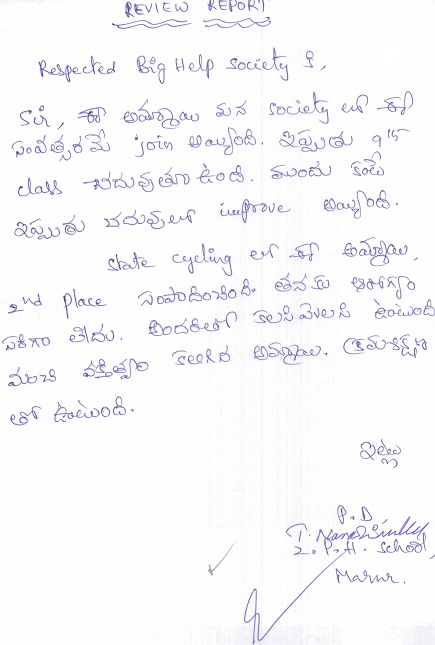 REVIEW REPORT
Respected Big Help Society కి,
Sir, ఈ అమ్మాయి మన society లో ఈ
సంవత్సరమే join అయ్యింది. ఇప్పుడు 9th
class చదువుతూ ఉంది. ముందు కంటే
ఇప్పుడు చదువులో improve అయ్యింది.
state cycling లో ఈ అమ్మాయి,
2nd place సంపాదించింది. తనకు ఆరోగ్యం
సరిగా లేదు. అందరితో కలసిమెలసి ఉంటుంది
మంచి వక్తిత్వం కలిగిన అమ్మాయి. క్రమశిక్షణ
తో ఉంటుంది.
ఇట్లు
P.D,
T.
Z.P.H. School,
Marur.